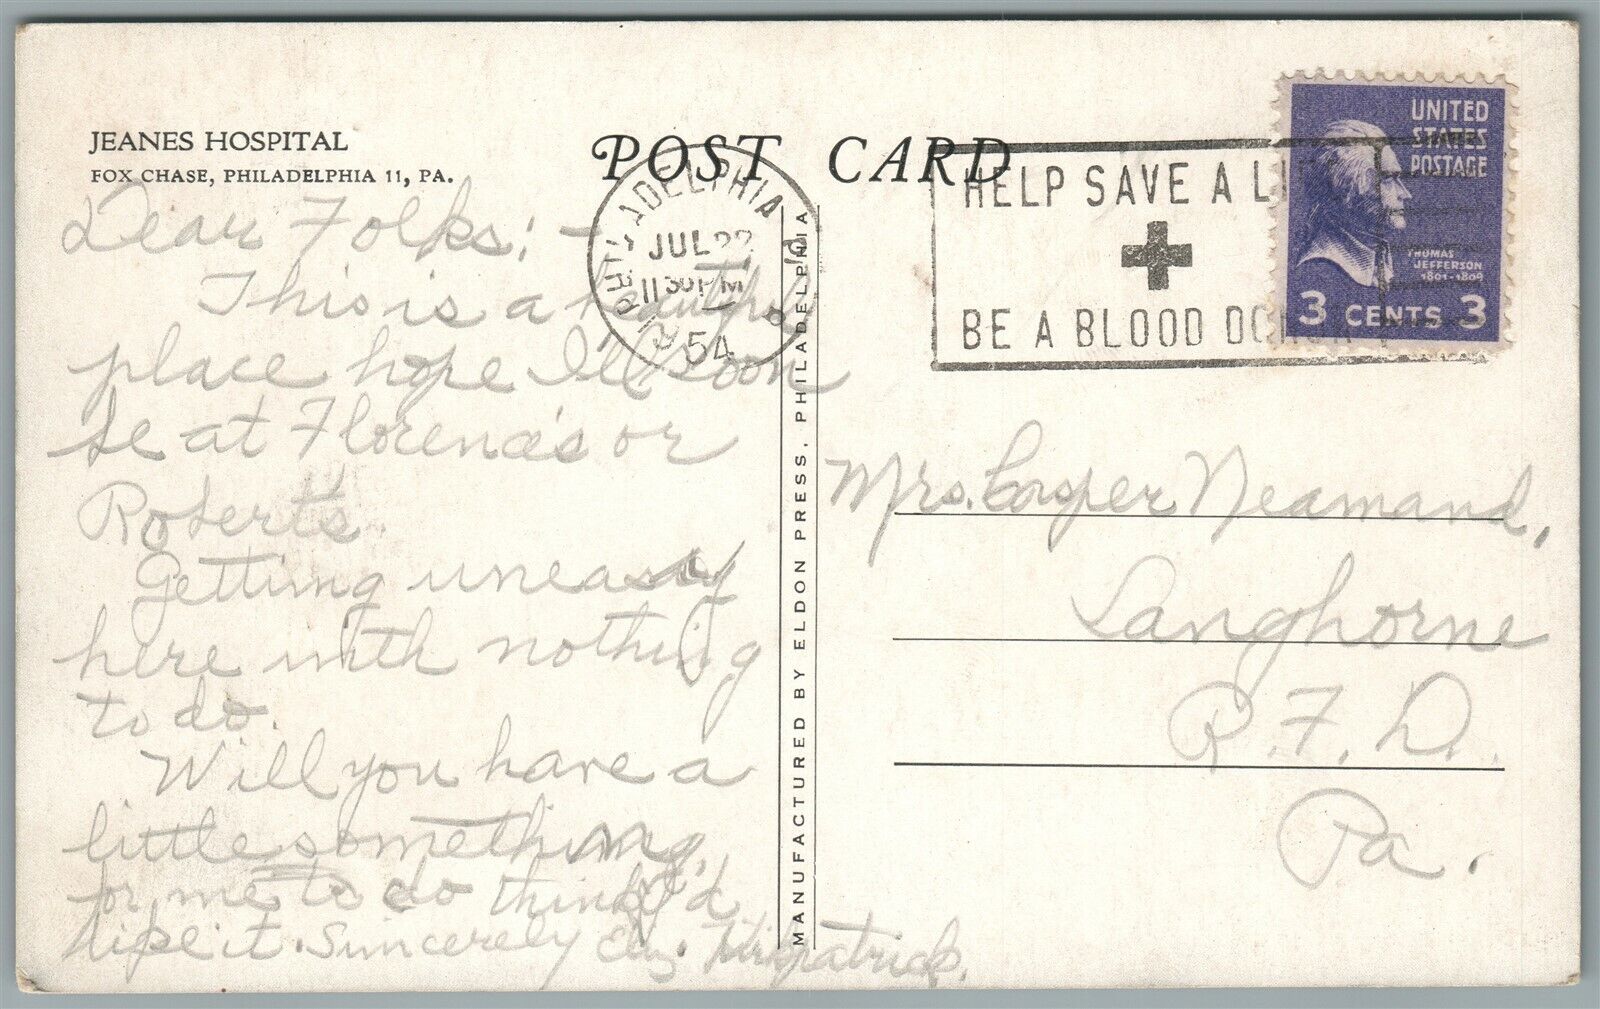 JEANES HOSPITAL
FOX CHASE, PHILADELPHIA 11, PA.
POST CARD
PHILADELPHIA PA.
JUL 22
11 30 PM
54
HELP SAVE A LIFE
BE A BLOOD DONOR
UNITED
STATES
POSTAGE
THOMAS
JEFFERSON
1801-1809
3 CENTS 3
Dear Folks: -
This is a beautiful
place hope Ill soon
be at Florence's or
Robert's.
Getting uneasy
here with nothing
to do.
Will you have a
little something,
for me to do think I'd
like it. Sincerely Eliz. Kirkpatrick.
MANUFACTURED BY ELDON PRESS, PHILADELPHIA
Mrs. Casper Neamand,
Langhorne
R.F.D.
Pa.